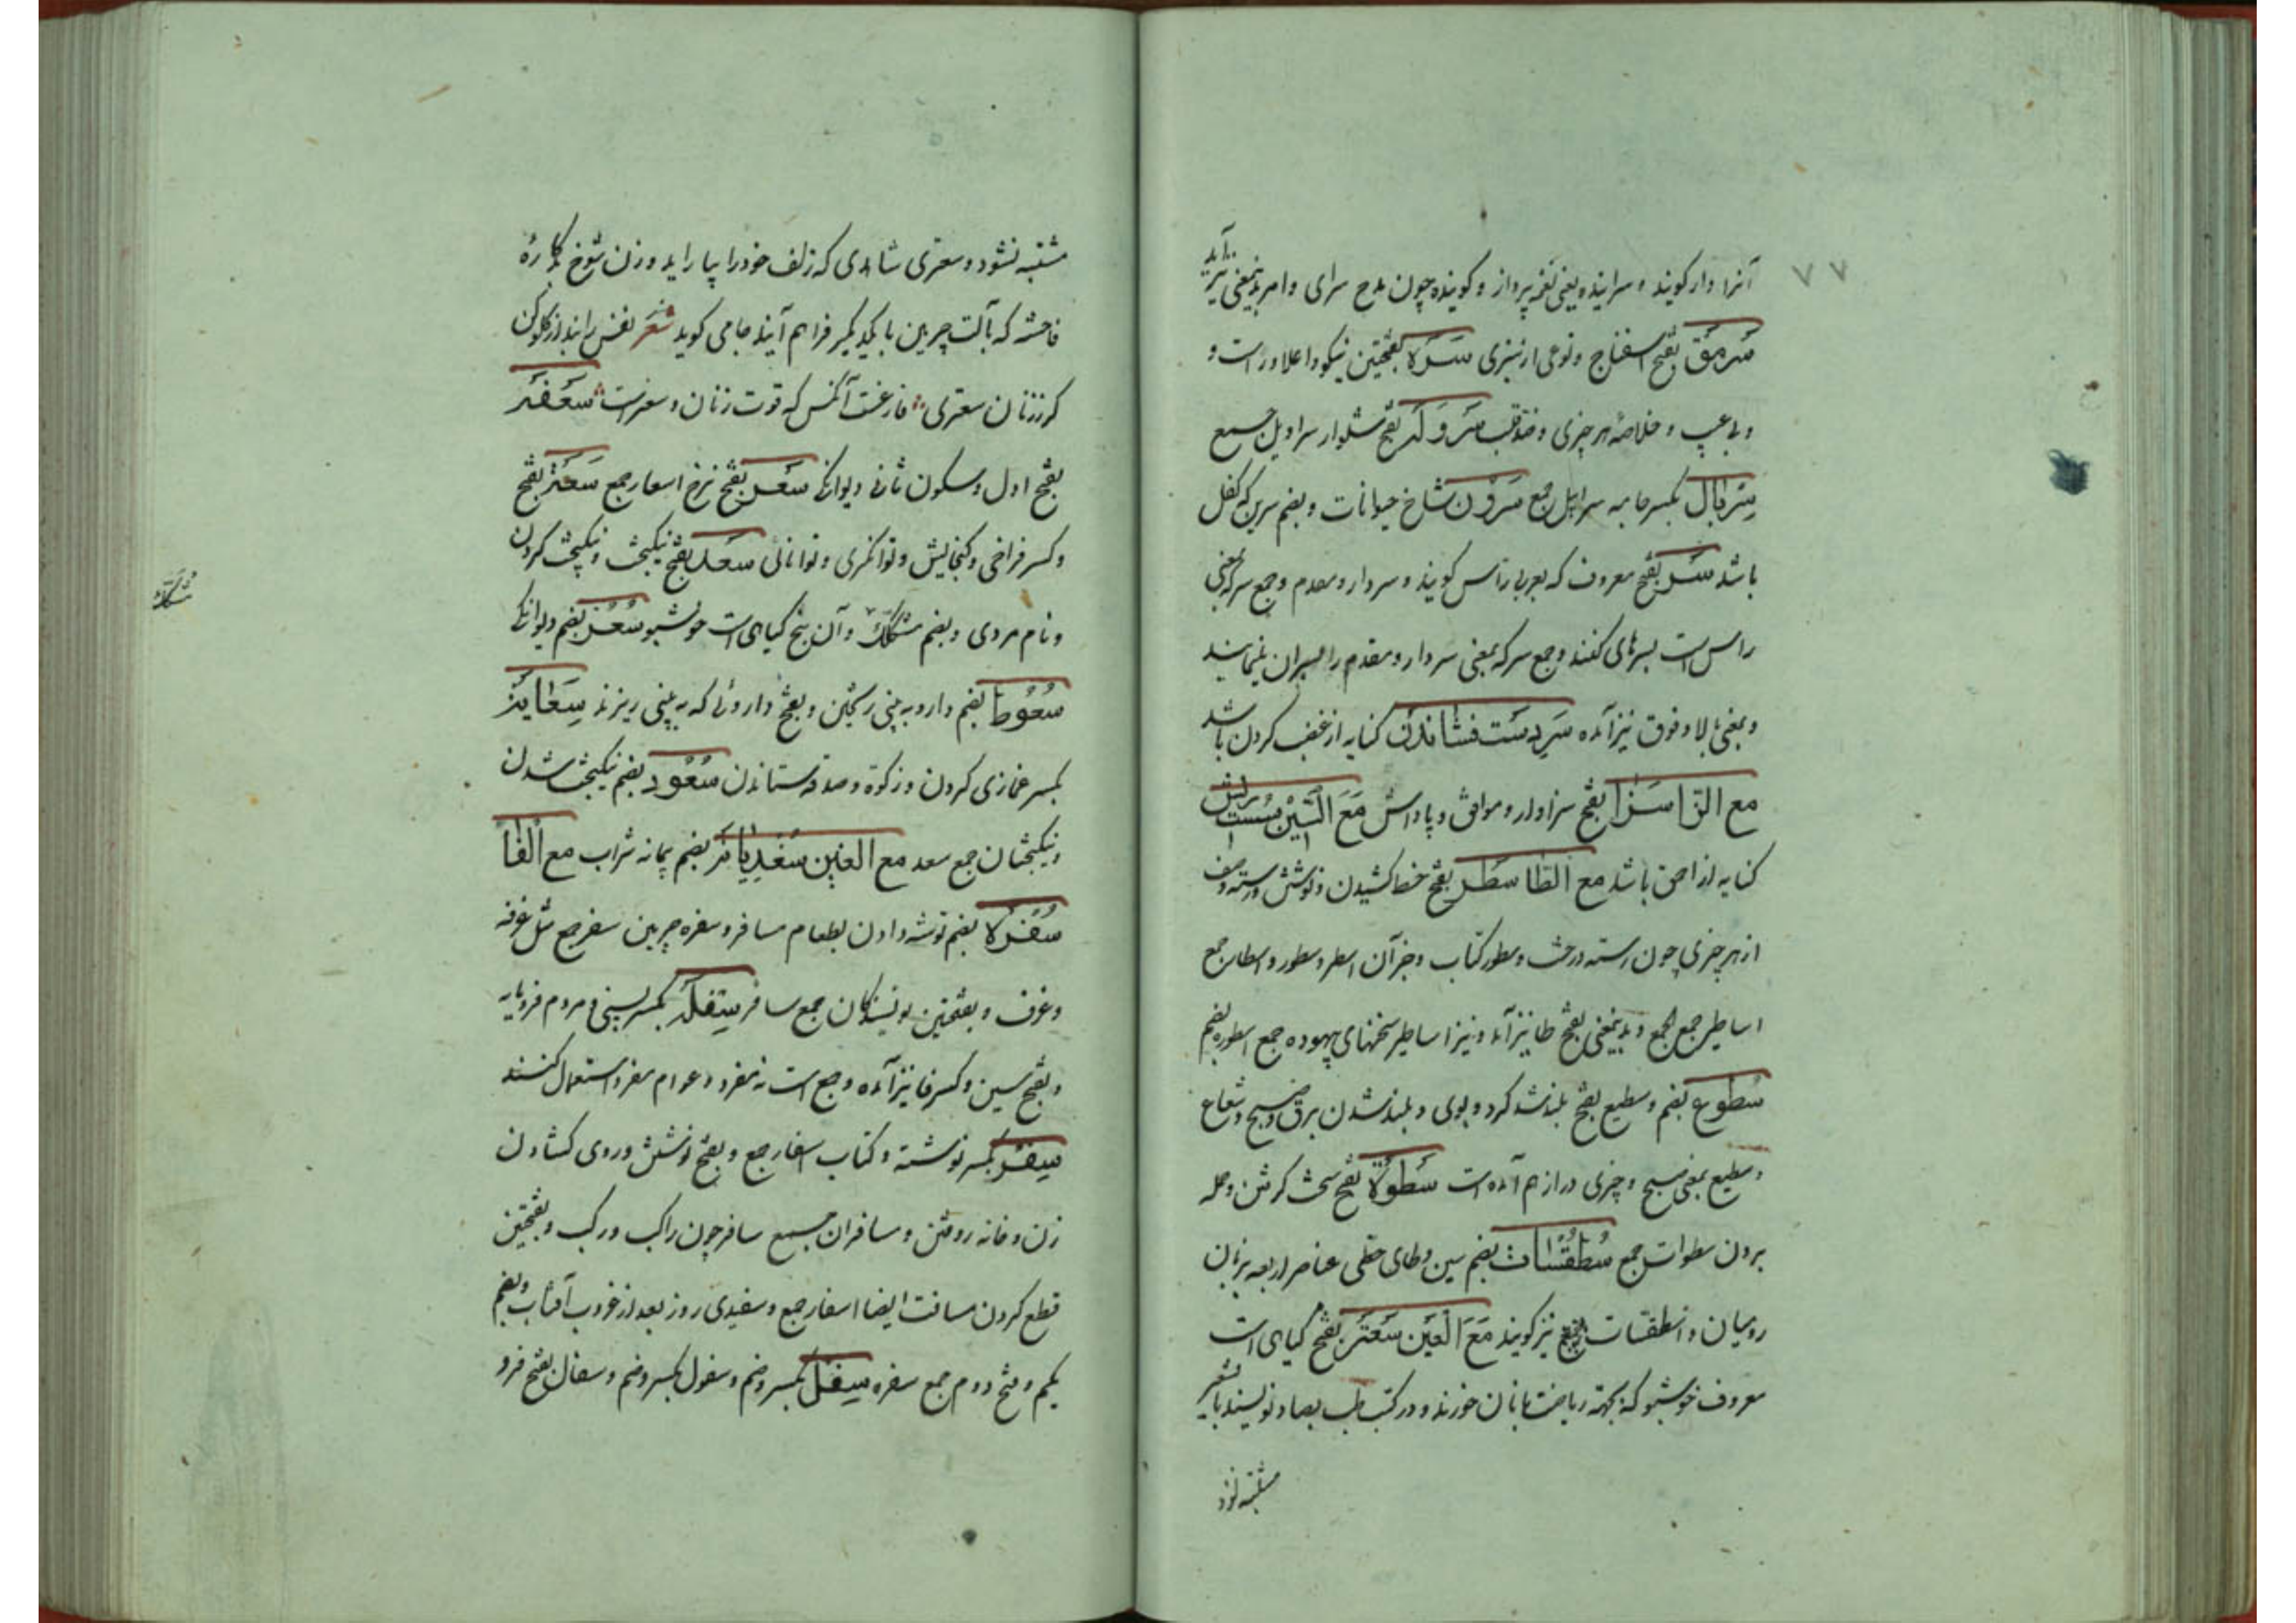 ۷۷
آنرا دار کویند و سراینده یعنی نغمه پرداز و کوینده چون مدح سرای و امر بدینمعنی نیز آید
سرمق بفتح اسفناج و نوعی از سبزی سره بفتحتین نیکو و اعلا و راست و
و بی عیب و خلاصه هر چیزی و ضد قلب بفتح شلوار سراویل جمع
سربال بکسر جامه سرابیل جمع سرون شاخ حیوانات و بضم سرین که کفل
باشد سر بفتح معروف که بعربی راس کویند و سردار و مقدم و جمع سر که بمعنی
راس است سرهای کفتند و جمع سر که بمعنی سردار و مقدم را سران
و بمعنی بالا و فوق نیز آمده سردست فشاندن کنایه از غضب کردن باشد
مع الزا سزا بفتح سزاوار و موافق و پاداش مع السین سست ریش
کنایه از احمق باشد مع الطا سطر بفتح خط کشیدن و نوشتن و رسته و صف
از هر چیزی چون رسته درخت و سطور کتاب و جز آن اسطر و سطور و اسطار جمع
اساطیر جمع الجمع و بدینمعنی بفتح طا نیز آمده و نیز اساطیر سخنهای بیهوده جمع اسطوره بضم
سطوع بضم و سطیع بفتح بلند شدن کرد و بوی و بلند شدن برق و صبح و شعاع
و سطیع بمعنی صبح و چیزی دراز هم آمده است سطوة بفتح سخت کرفتن و حمله
بردن سطوات جمع سطقسات بضم سین و طای حطی عناصر اربعه بزبان
رومیان و اسطقسات نیز کویند مع العین سعتر بفتح کیاهی است
معروف خوشبو که بجهته ریاضت با نان خورند و در کتب طب بصاد نویسند تا بشعیر
مشتبه نشود
مشتبه نشود و سعتری شاهدی که زلف خود را بیاراید و زن شوخ بدکاره
فاحشه که بآلت چرمین با یکدیکر فراهم آیند جامی کوید شعر نفس را بند از کلو کن
کرززنان سعتری فارغست آنکس که قوت زنان و سعتر است سعفر
بفتح اول و سکون ثانی دیوانکی سعر بفتح نرخ اسعار جمع سعة بفتح
و کسر فراخی و کنجایش و توانکری و توانائی سعد بفتح نیکبخت و نیکبخت کردن
و نام مردی و بضم مشکک و آن بیخ کیاهی است خوشبو سعر بضم دیوانکی
مشکک
سعوط بضم دارو به بینی ریختن و بفتح داروئی که به بینی ریزند سعایة
بکسر غمازی کردن و زکوة و صدقه ستاندن سعود بضم نیکبخت شدن
و نیکبختان جمع سعد مع الغین بضم پیمانه شراب مع الفا
سفره بضم توشه دادن بطعام مسافر و سفره چرمین سفر جمع مثل غرفه
و غرف و بفتحتین نویسندکان جمع سافر سفله بکسر پستی و مردم فرومایه
و بفتح سین و کسر فا نیز آمده و جمع است نه مفرد و عوام مفرد استعمال کنند
سفر بکسر نوشته و کتاب اسفار جمع و بفتح نوشتن و روی کشادن
زن و خانه روفتن و مسافران جمع سافر چون راکب و رکب و بفتحتین
قطع کردن مسافت ایضا اسفار جمع و سفیدی روز بعد از غروب آفتاب و بضم
یکم و فتح دوم جمع سفره سفل بکسر و ضم و سفول بکسر و ضم و سفال بفتح فرو